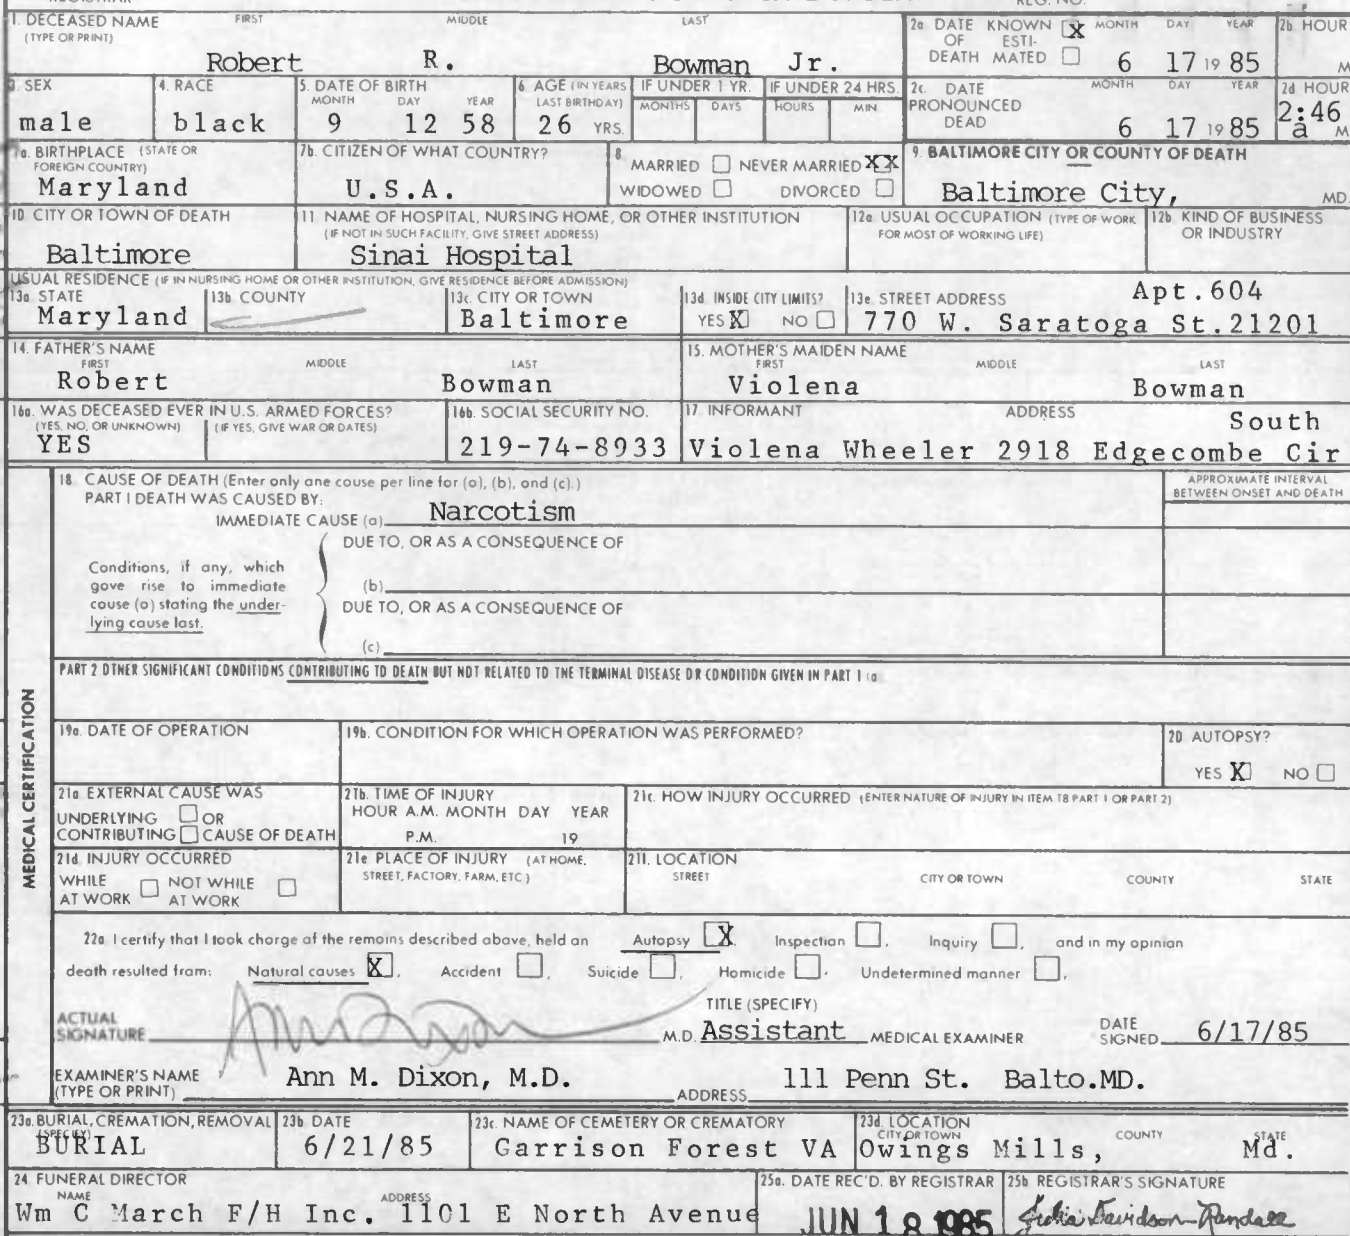 1. DECEASED NAME FIRST MIDDLE LAST
(TYPE OR PRINT)
Robert R. Bowman Jr.
2a DATE KNOWN X MONTH DAY YEAR
OF ESTI-
DEATH MATED 6 17 19 85
2b HOUR
M
3. SEX
male
4. RACE
black
5. DATE OF BIRTH
MONTH DAY YEAR
9 12 58
6 AGE (IN YEARS
LAST BIRTHDAY)
26 YRS.
IF UNDER 1 YR.
MONTHS DAYS
IF UNDER 24 HRS.
HOURS MIN
2c. DATE MONTH DAY YEAR
PRONOUNCED
DEAD 6 17 19 85
2d HOUR
2:46
a M
7a. BIRTHPLACE (STATE OR
FOREIGN COUNTRY)
Maryland
7b. CITIZEN OF WHAT COUNTRY?
U.S.A.
8
MARRIED NEVER MARRIED XX
WIDOWED DIVORCED
9. BALTIMORE CITY OR COUNTY OF DEATH
Baltimore City, MD.
10 CITY OR TOWN OF DEATH
Baltimore
11. NAME OF HOSPITAL, NURSING HOME, OR OTHER INSTITUTION
(IF NOT IN SUCH FACILITY, GIVE STREET ADDRESS)
Sinai Hospital
12a USUAL OCCUPATION (TYPE OF WORK
FOR MOST OF WORKING LIFE)
12b. KIND OF BUSINESS
OR INDUSTRY
USUAL RESIDENCE (IF IN NURSING HOME OR OTHER INSTITUTION, GIVE RESIDENCE BEFORE ADMISSION)
13a STATE
Maryland
13b COUNTY
13c. CITY OR TOWN
Baltimore
13d INSIDE CITY LIMITS?
YES X NO
13e STREET ADDRESS Apt.604
770 W. Saratoga St.21201
14. FATHER'S NAME
FIRST MIDDLE LAST
Robert Bowman
15. MOTHER'S MAIDEN NAME
FIRST MIDDLE LAST
Violena Bowman
16a. WAS DECEASED EVER IN U.S. ARMED FORCES?
(YES, NO, OR UNKNOWN) (IF YES, GIVE WAR OR DATES)
YES
16b. SOCIAL SECURITY NO.
219-74-8933
17 INFORMANT ADDRESS
South
Violena Wheeler 2918 Edgecombe Cir
18 CAUSE OF DEATH (Enter only one cause per line for (a), (b), and (c).)
PART I DEATH WAS CAUSED BY:
IMMEDIATE CAUSE (a) Narcotism
APPROXIMATE INTERVAL
BETWEEN ONSET AND DEATH
DUE TO, OR AS A CONSEQUENCE OF
Conditions, if any, which
gave rise to immediate
cause (a) stating the under-
lying cause last.
(b)
DUE TO, OR AS A CONSEQUENCE OF
(c)
PART 2 OTHER SIGNIFICANT CONDITIONS CONTRIBUTING TO DEATH BUT NOT RELATED TO THE TERMINAL DISEASE OR CONDITION GIVEN IN PART 1 (a
MEDICAL CERTIFICATION
19a. DATE OF OPERATION
19b. CONDITION FOR WHICH OPERATION WAS PERFORMED?
20 AUTOPSY?
YES X NO
21a EXTERNAL CAUSE WAS
UNDERLYING OR
CONTRIBUTING CAUSE OF DEATH
21b. TIME OF INJURY
HOUR A.M. MONTH DAY YEAR
P.M. 19
21c. HOW INJURY OCCURRED (ENTER NATURE OF INJURY IN ITEM 18 PART 1 OR PART 2)
21d INJURY OCCURRED
WHILE NOT WHILE
AT WORK AT WORK
21e PLACE OF INJURY (AT HOME,
STREET, FACTORY, FARM, ETC.)
21f. LOCATION
STREET CITY OR TOWN COUNTY STATE
22a I certify that I took charge of the remains described above, held an Autopsy X, Inspection , Inquiry , and in my opinion
death resulted from: Natural causes X, Accident , Suicide , Homicide , Undetermined manner ,
ACTUAL
SIGNATURE Ann Dixon M.D.
TITLE (SPECIFY)
Assistant MEDICAL EXAMINER
DATE
SIGNED 6/17/85
EXAMINER'S NAME
(TYPE OR PRINT) Ann M. Dixon, M.D.
ADDRESS 111 Penn St. Balto.MD.
23a. BURIAL, CREMATION, REMOVAL
(SPECIFY)
BURIAL
23b DATE
6/21/85
23c. NAME OF CEMETERY OR CREMATORY
Garrison Forest VA
23d. LOCATION
CITY OR TOWN COUNTY STATE
Owings Mills, Md.
24 FUNERAL DIRECTOR
NAME ADDRESS
Wm C March F/H Inc. 1101 E North Avenue
25a. DATE REC'D. BY REGISTRAR
JUN 18 1985
25b REGISTRAR'S SIGNATURE
Julia Davidson-Randall